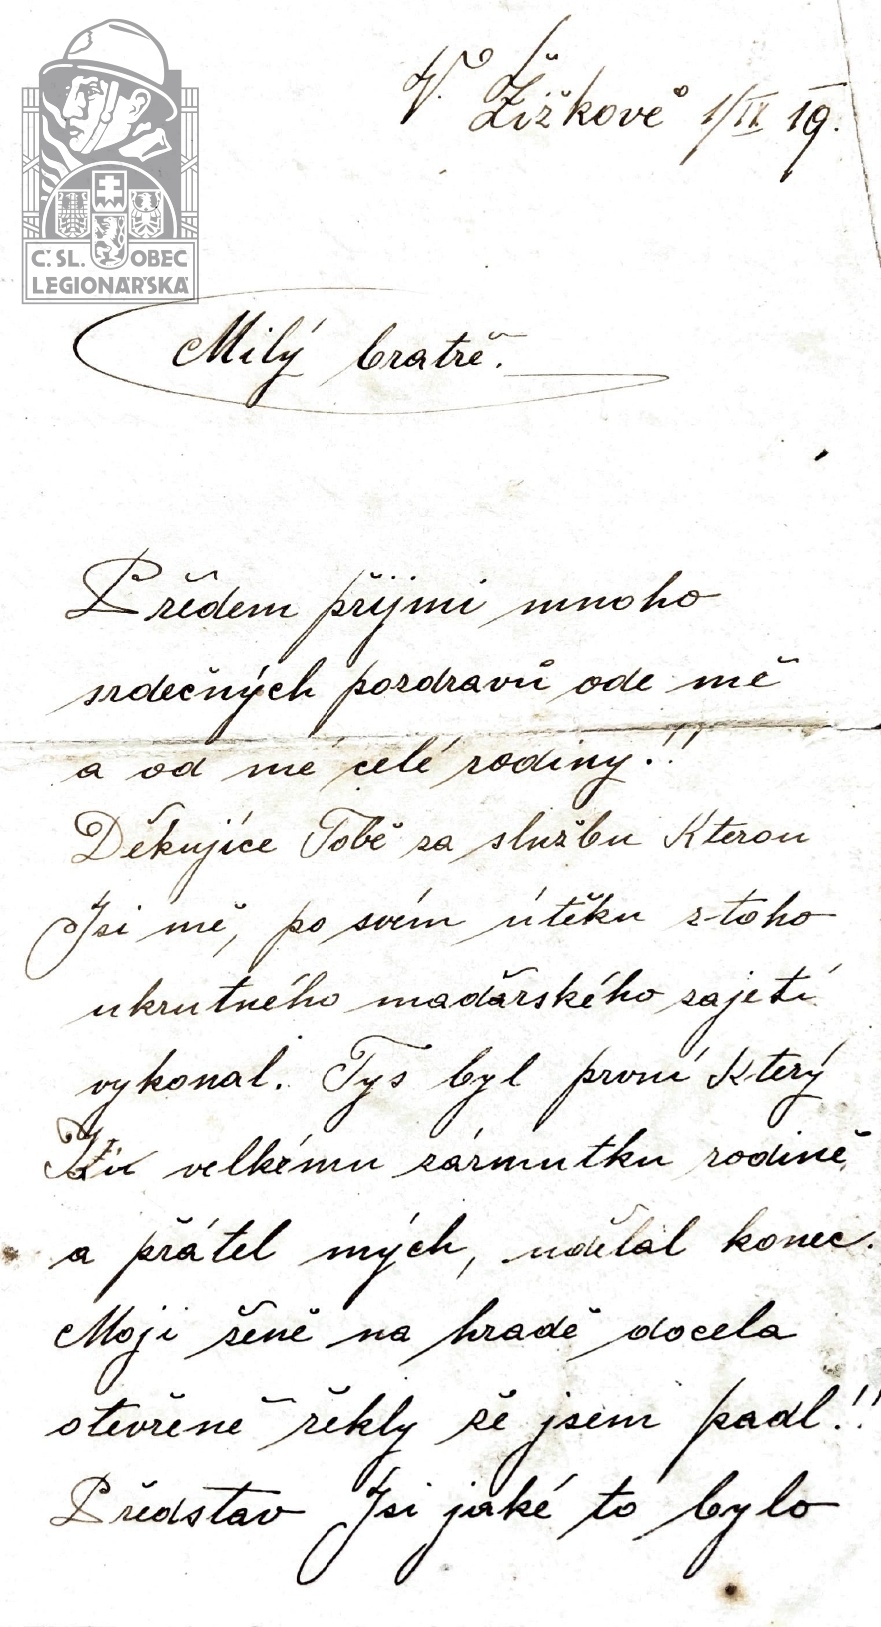 Č.SL. OBEC
LEGIONÁŘSKÁ
V. Žižkově 1/IX 19.
Milý bratře.
Předem přijmi mnoho
srdečných pozdravů ode mě
a od mé celé rodiny!!
Děkujíce Tobě za službu Kterou
Jsi mě, po svém útěku z-toho
ukrutného maďarského zajetí
vykonal. Tys byl první Který
velkému zármutku rodině,
a přátel mých, udělal konec.
Moji ženě na hradě docela
otevřeně řekly že jsem padl!!
Představ Jsi jaké to bylo